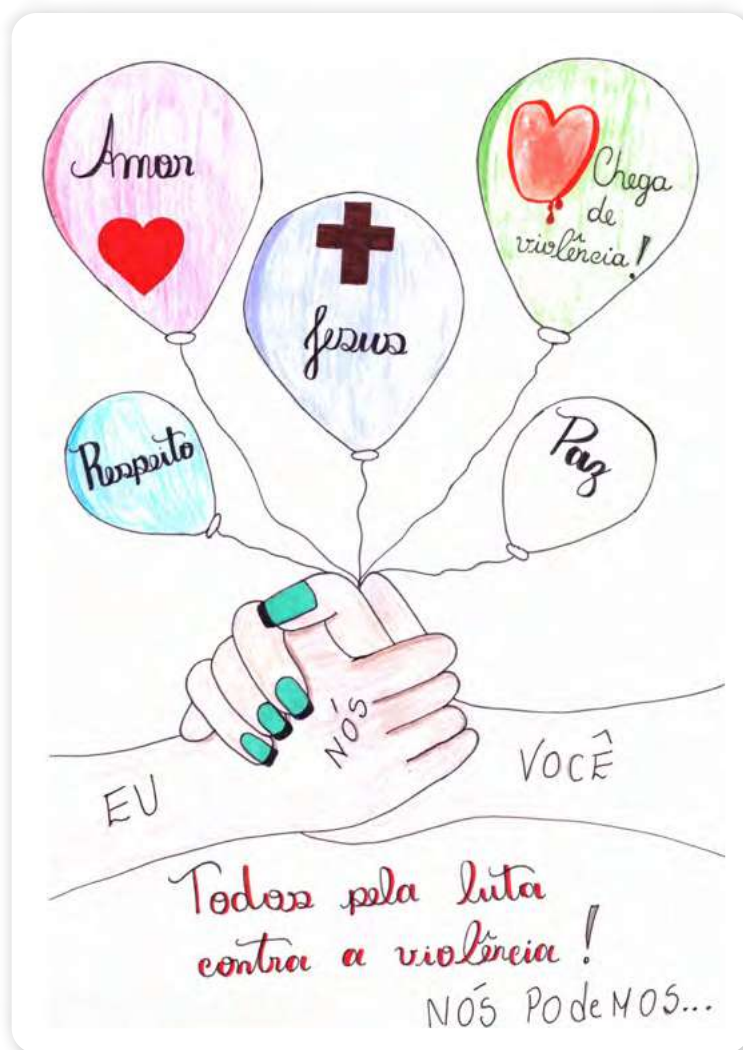 Amor
Chega
de
violência!
Jesus
Respeito
Paz
NÓS
EU
VOCÊ
Todos pela luta
contra a violência!
NÓS PodeMOS...